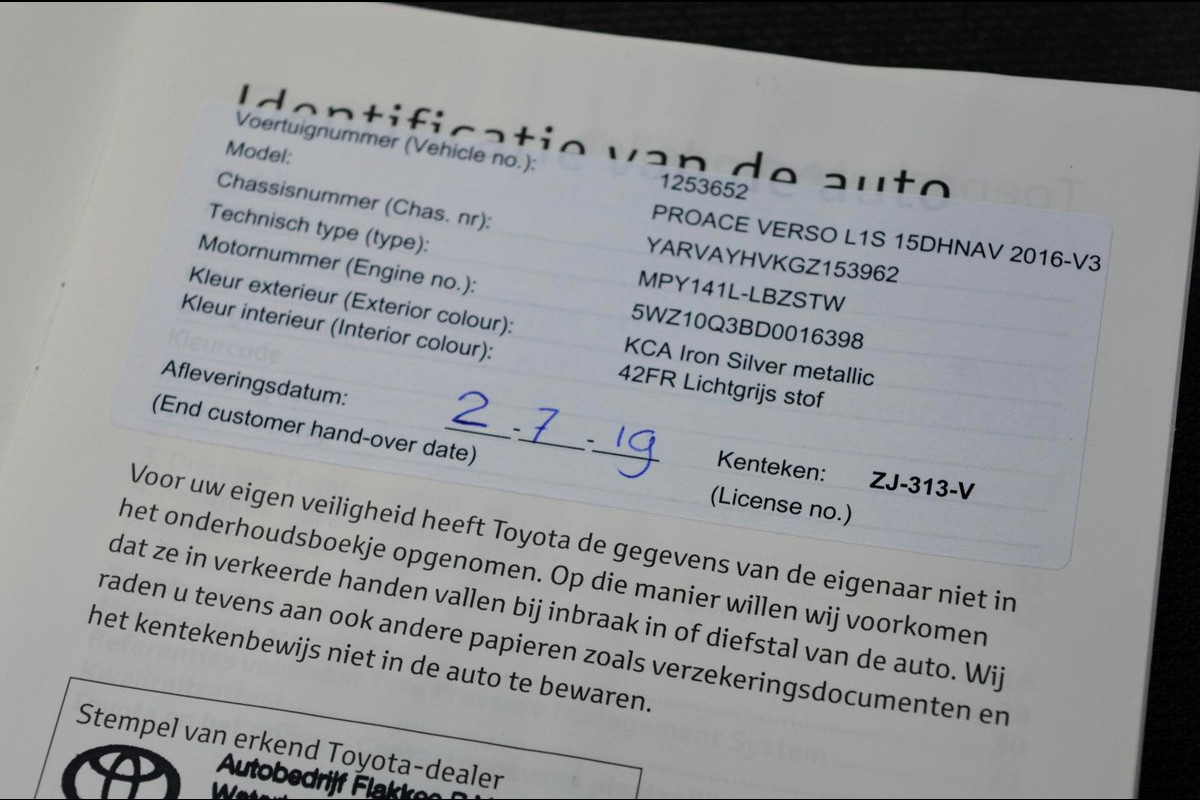 Identificatie van de auto
Voertuignummer (Vehicle no.): 1253652
Model: PROACE VERSO L1S 15DHNAV 2016-V3
Chassisnummer (Chas. nr): YARVAYHVKGZ153962
Technisch type (type): MPY141L-LBZSTW
Motornummer (Engine no.): 5WZ10Q3BD0016398
Kleur exterieur (Exterior colour): KCA Iron Silver metallic
Kleur interieur (Interior colour): 42FR Lichtgrijs stof
Kleurcode
Afleveringsdatum: 2-7-19
(End customer hand-over date)
Kenteken: ZJ-313-V
(License no.)
Voor uw eigen veiligheid heeft Toyota de gegevens van de eigenaar niet in
het onderhoudsboekje opgenomen. Op die manier willen wij voorkomen
dat ze in verkeerde handen vallen bij inbraak in of diefstal van de auto. Wij
raden u tevens aan ook andere papieren zoals verzekeringsdocumenten en
het kentekenbewijs niet in de auto te bewaren.
Stempel van erkend Toyota-dealer
Autobedrijf Flakkee